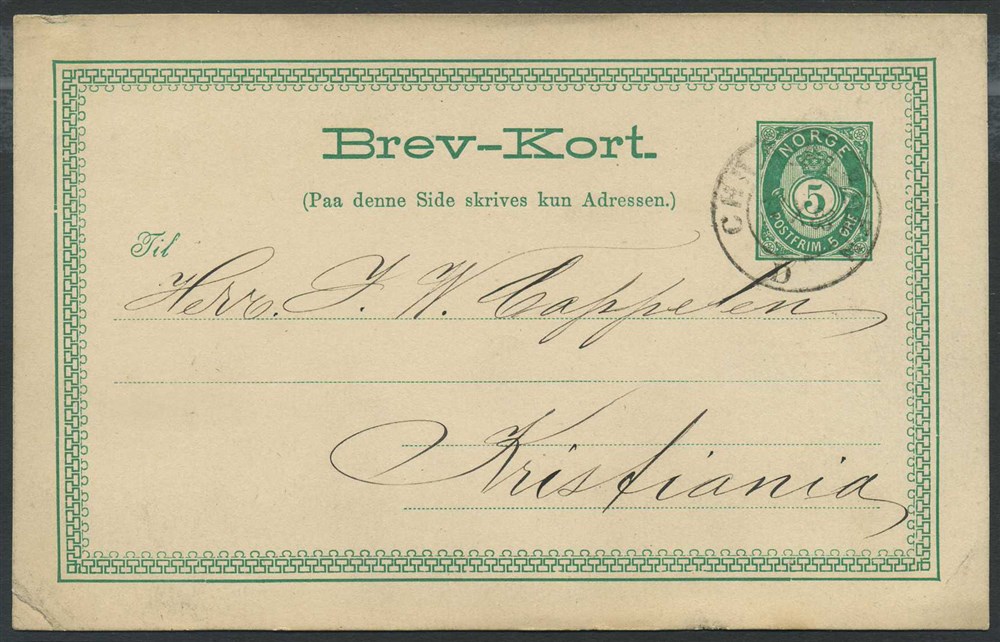 Brev-Kort.
(Paa denne Side skrives kun Adressen.)
NORGE
5
POSTFRIM. 5 ØRE
Til
Herr. J. W. Cappelen
Kristiania